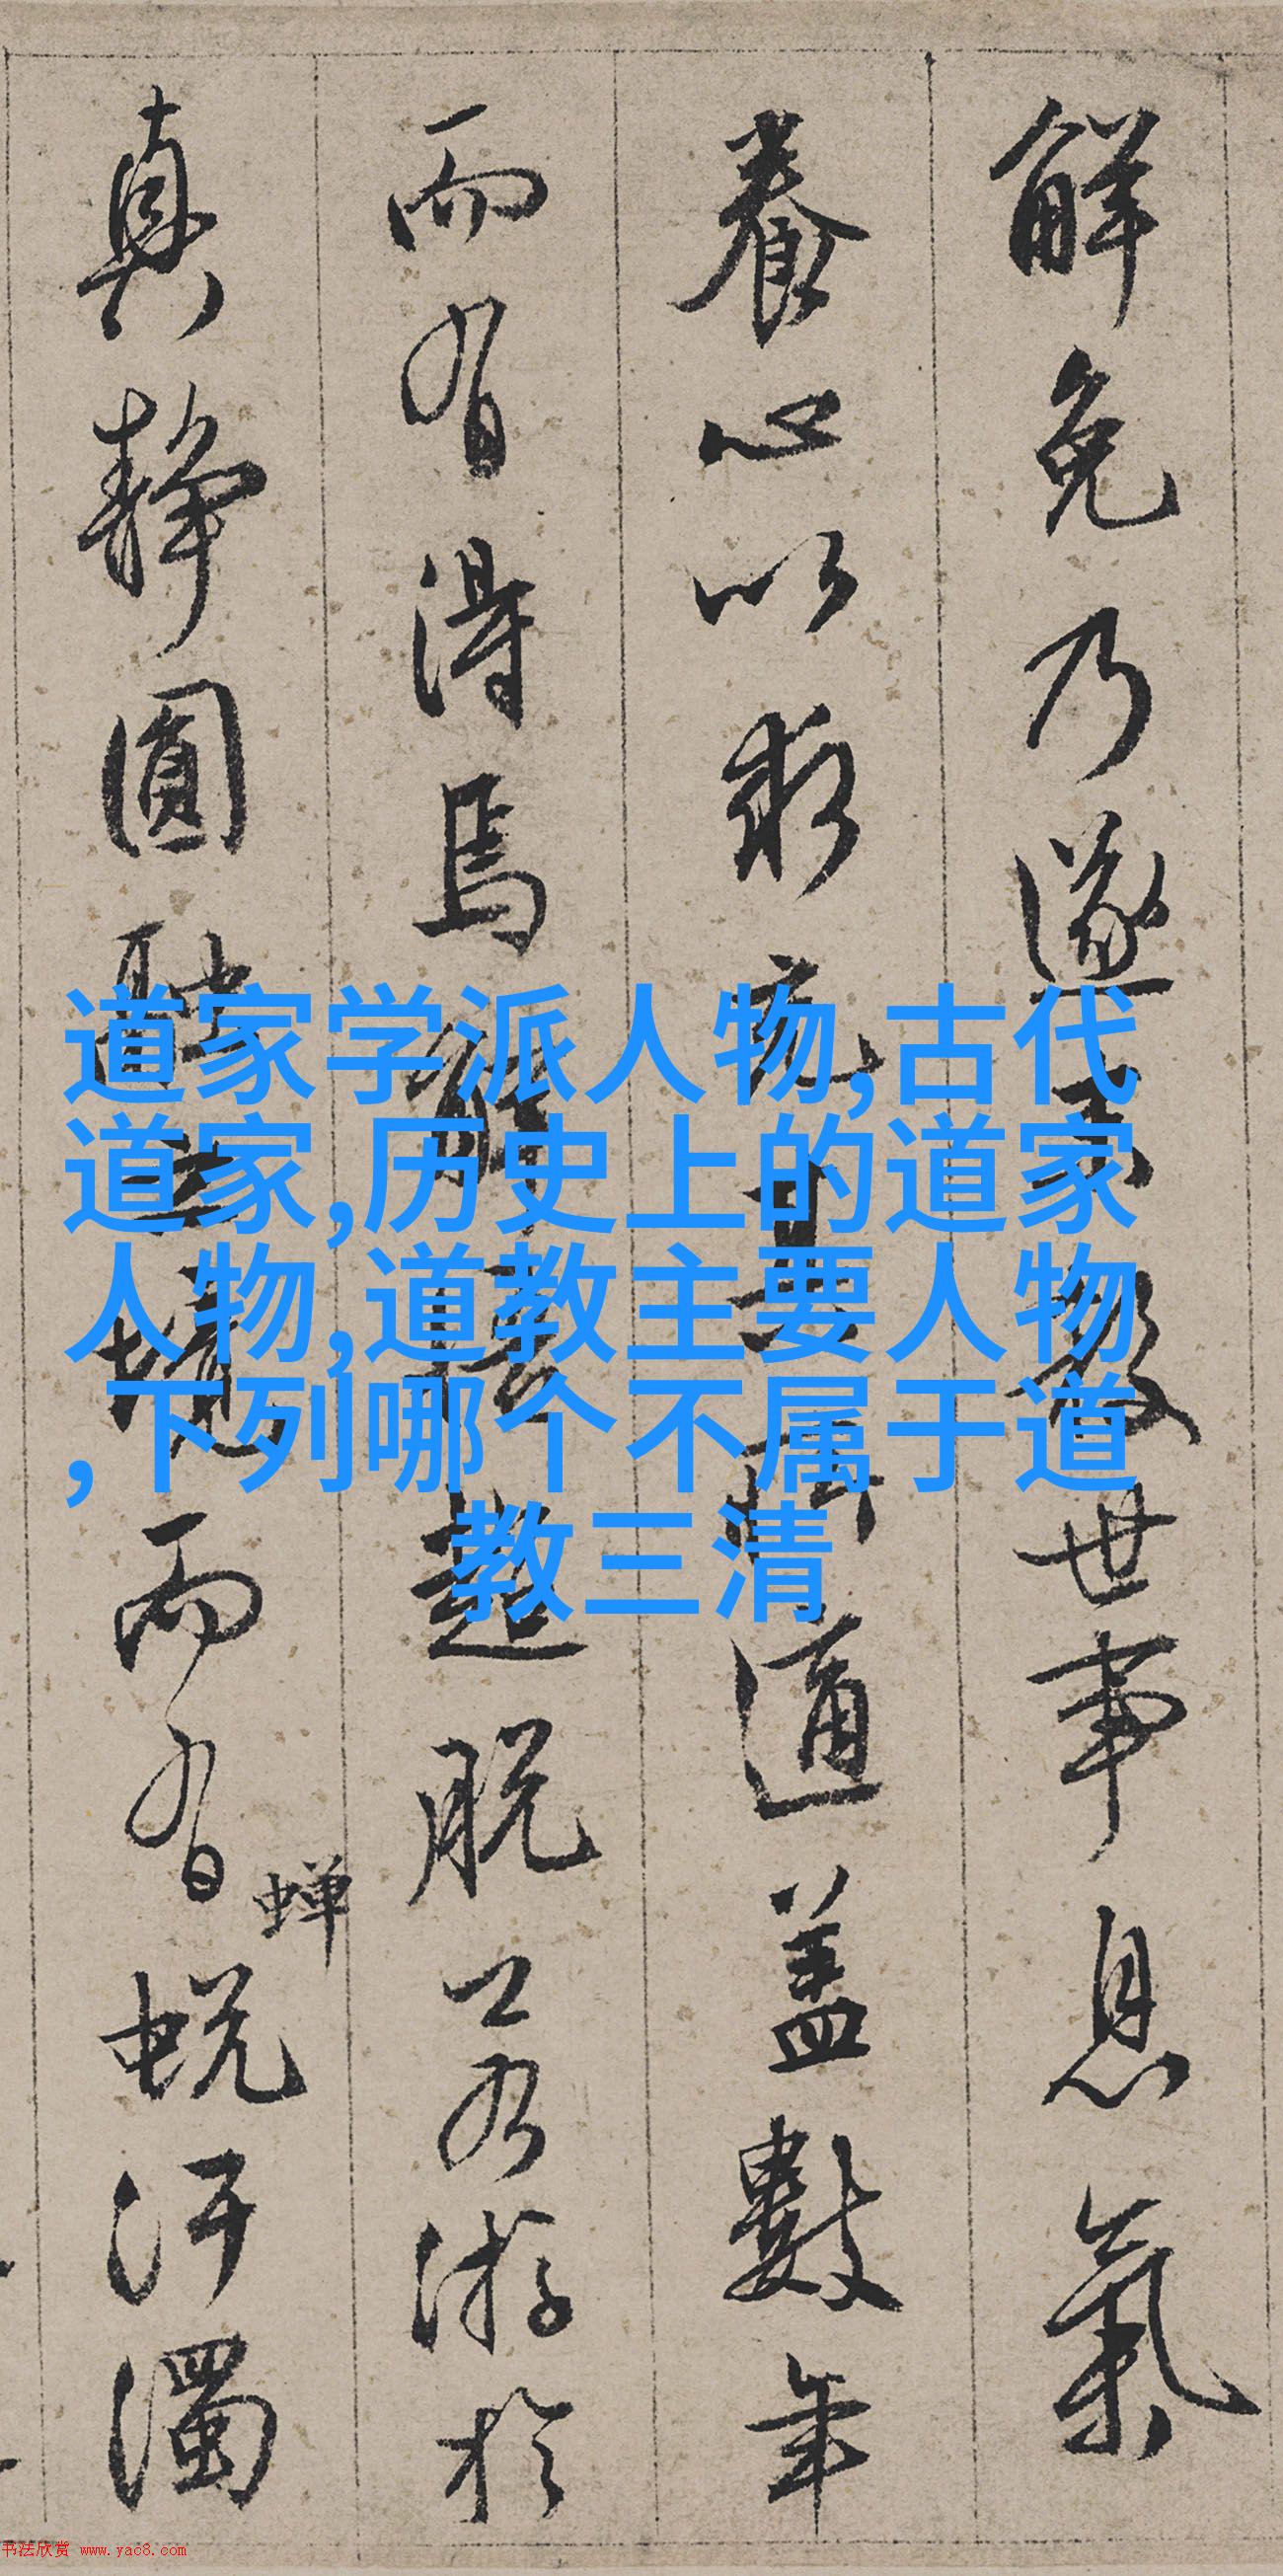 解免乃遂□□數世事息氣
養心以求□□□□適蓋數年
而有得焉解□□超脫不為游於
真靜圓融□□而有蟬蛻污濁
道家学派人物,古代
道家,历史上的道家
人物,道教主要人物
,下列哪个不属于道
教三清
书法欣赏 www.yac8.com